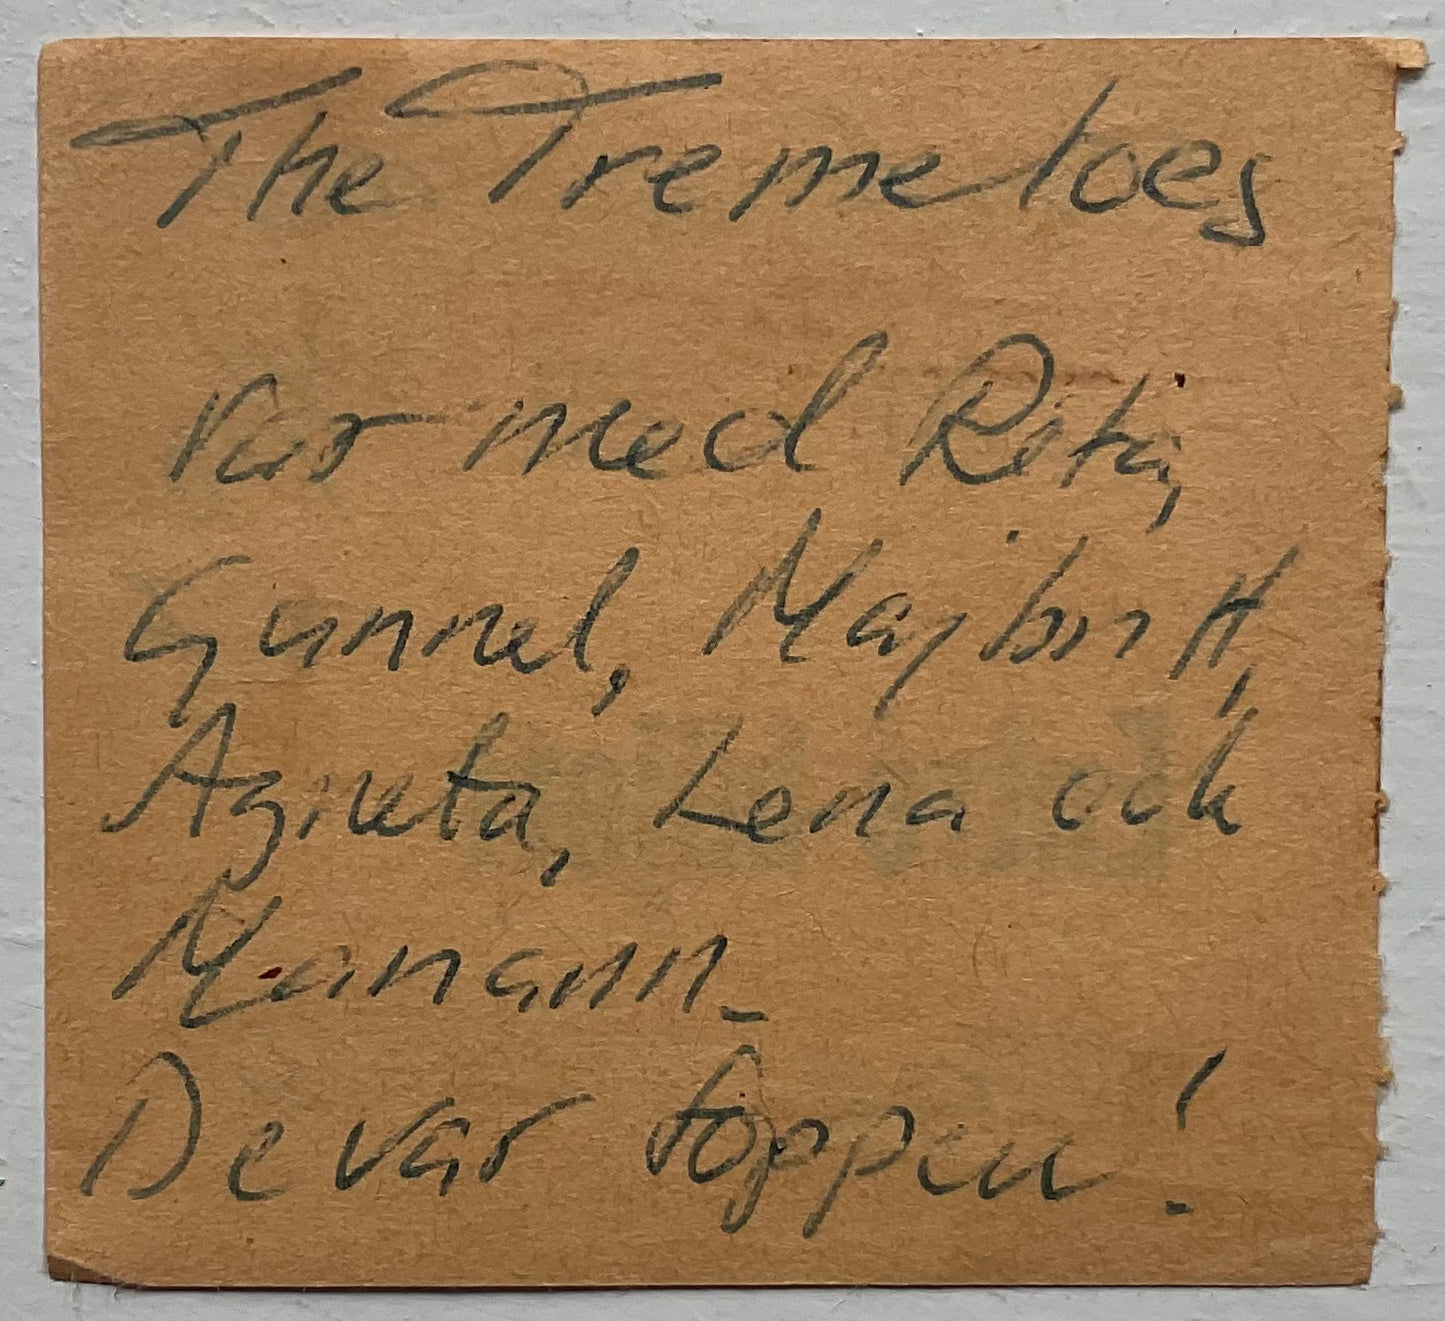 The Tremeloes
var med Rita,
Gunnel, Majbritt,
Agneta, Lena och
Mariann.
De var toppen!